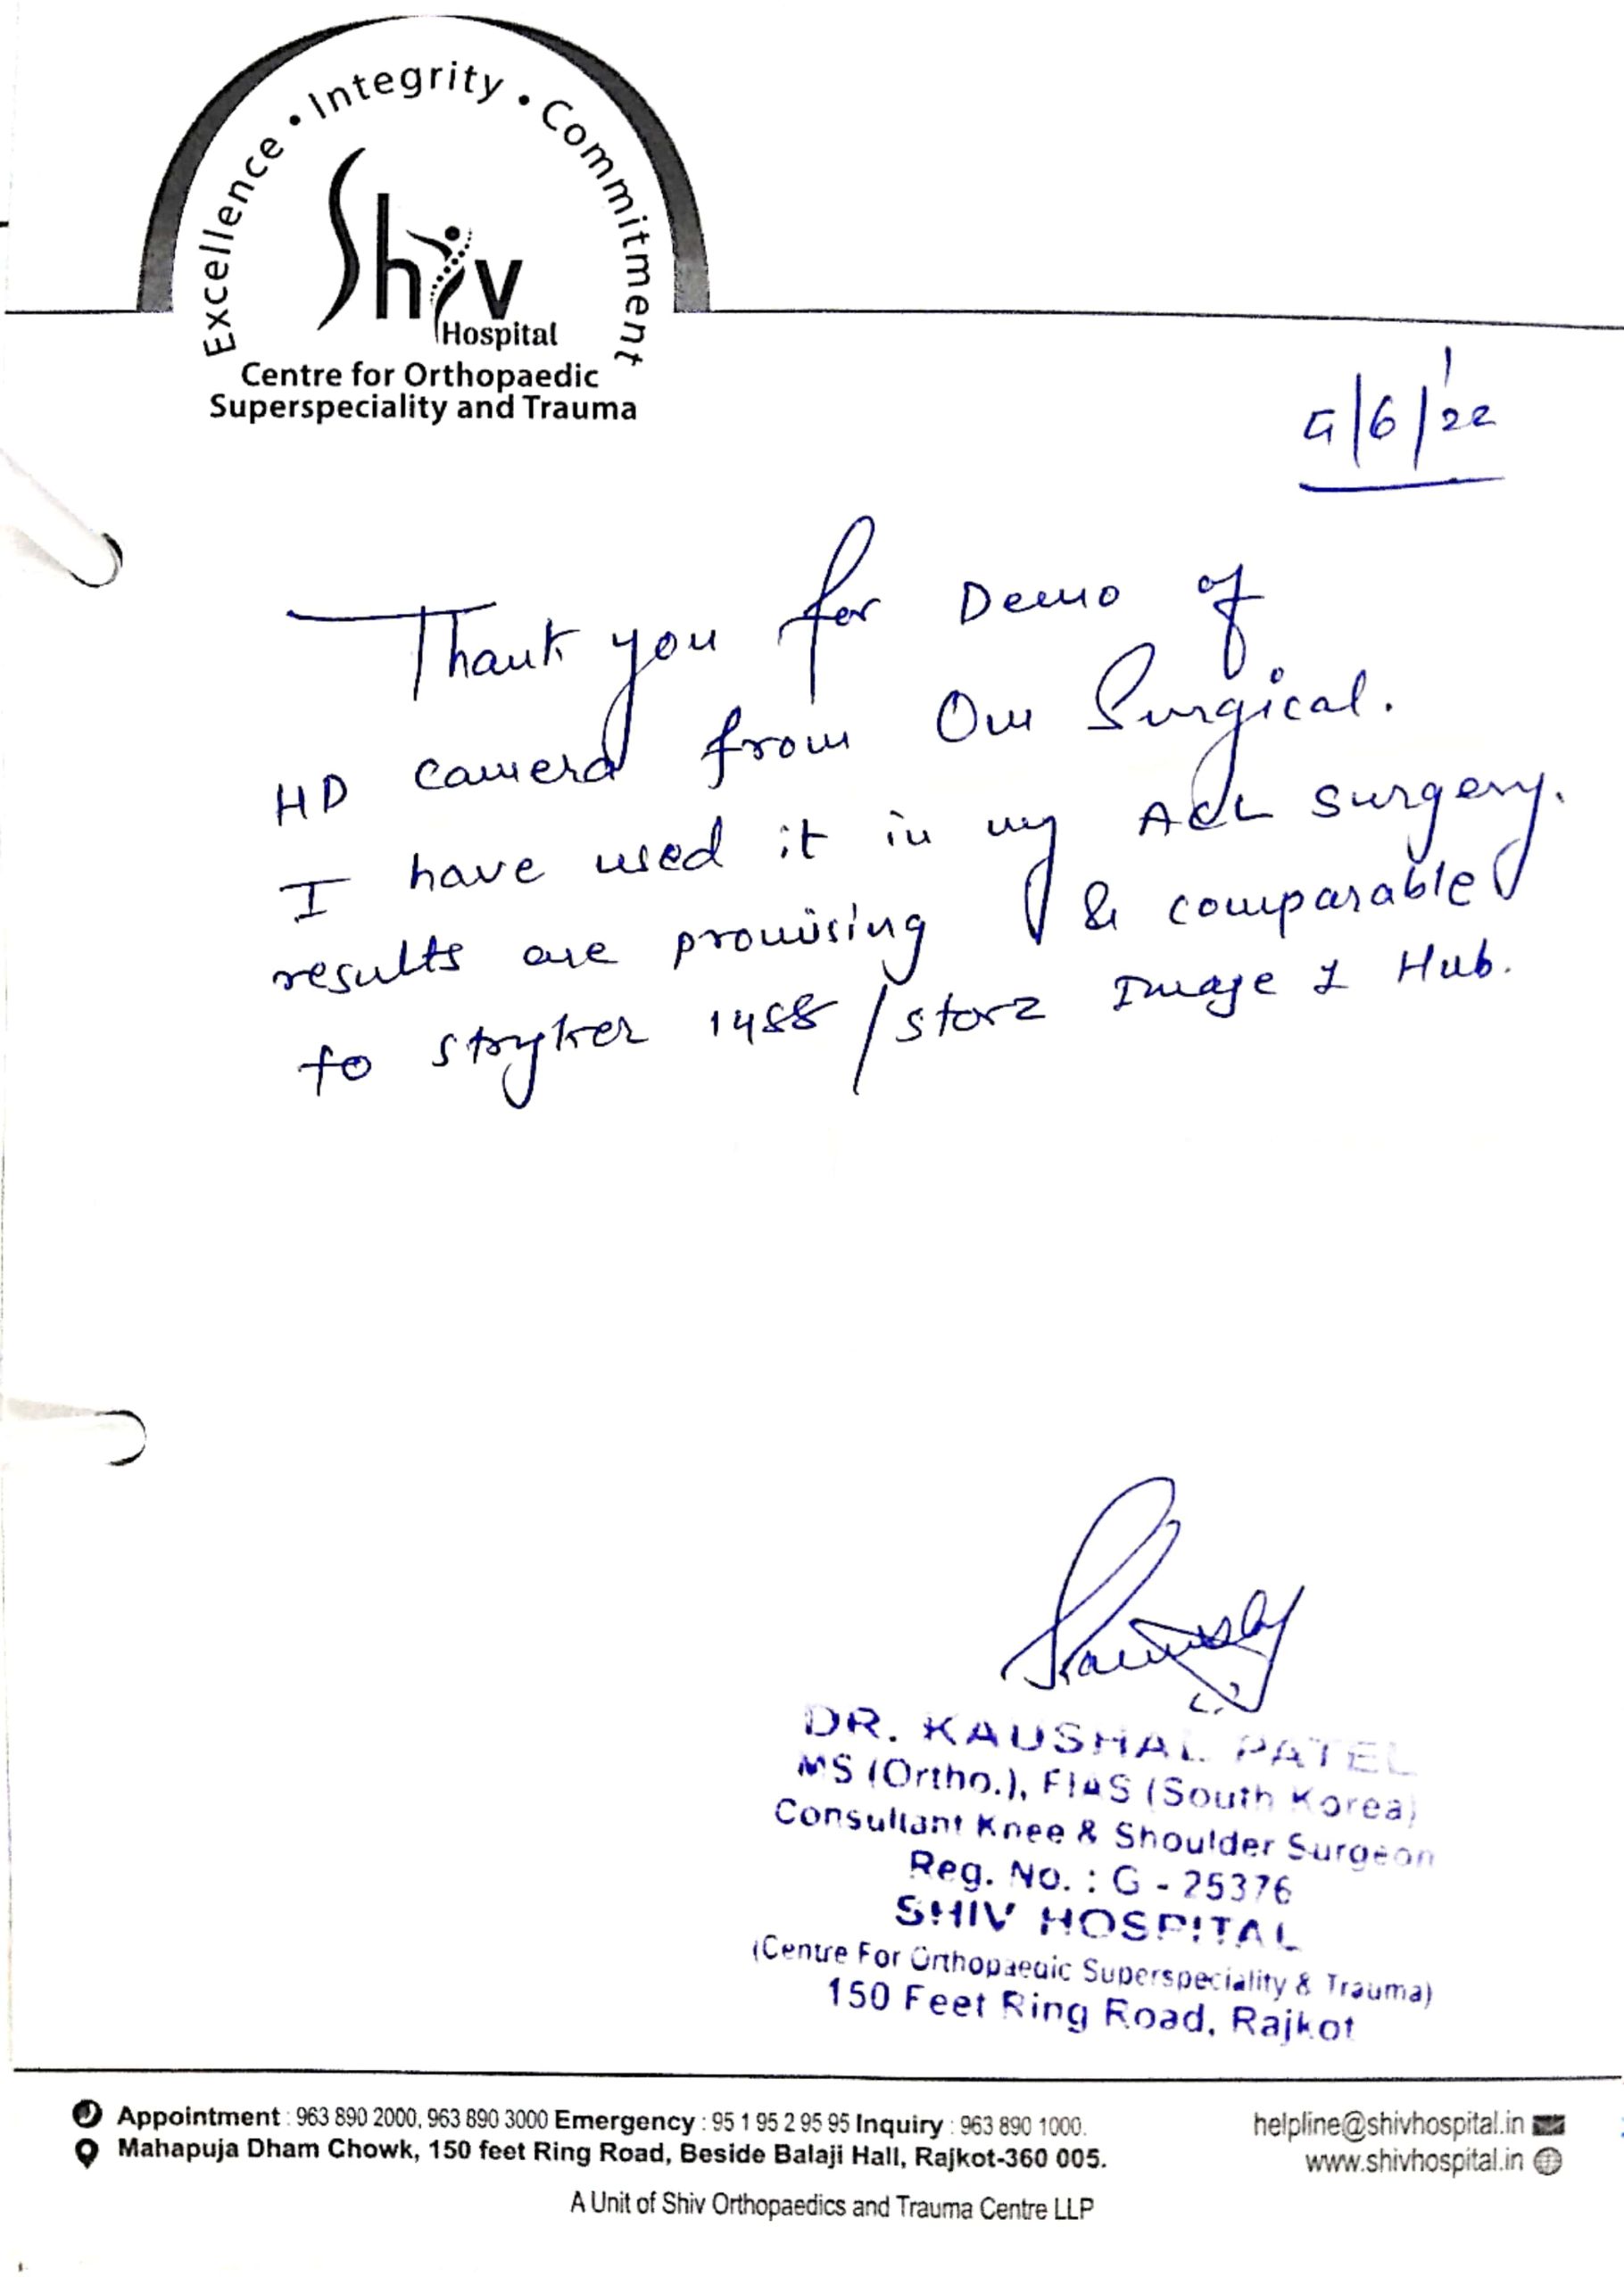 Excellence • Integrity • Commitment
Shiv
Hospital
Centre for Orthopaedic
Superspeciality and Trauma
5/6/22
Thank you for Demo of
HD camera from Om Surgical.
I have used it in my ACL surgery.
results are promising & comparable
to stryker 1488 / storz Image 1 Hub.
DR. KAUSHAL PATEL
MS (Ortho.), FIAS (South Korea)
Consultant Knee & Shoulder Surgeon
Reg. No. : G - 25376
SHIV HOSPITAL
(Centre For Orthopaedic Superspeciality & Trauma)
150 Feet Ring Road, Rajkot
Appointment : 963 890 2000, 963 890 3000 Emergency : 95 1 95 2 95 95 Inquiry : 963 890 1000.
helpline@shivhospital.in
Mahapuja Dham Chowk, 150 feet Ring Road, Beside Balaji Hall, Rajkot-360 005.
www.shivhospital.in
A Unit of Shiv Orthopaedics and Trauma Centre LLP